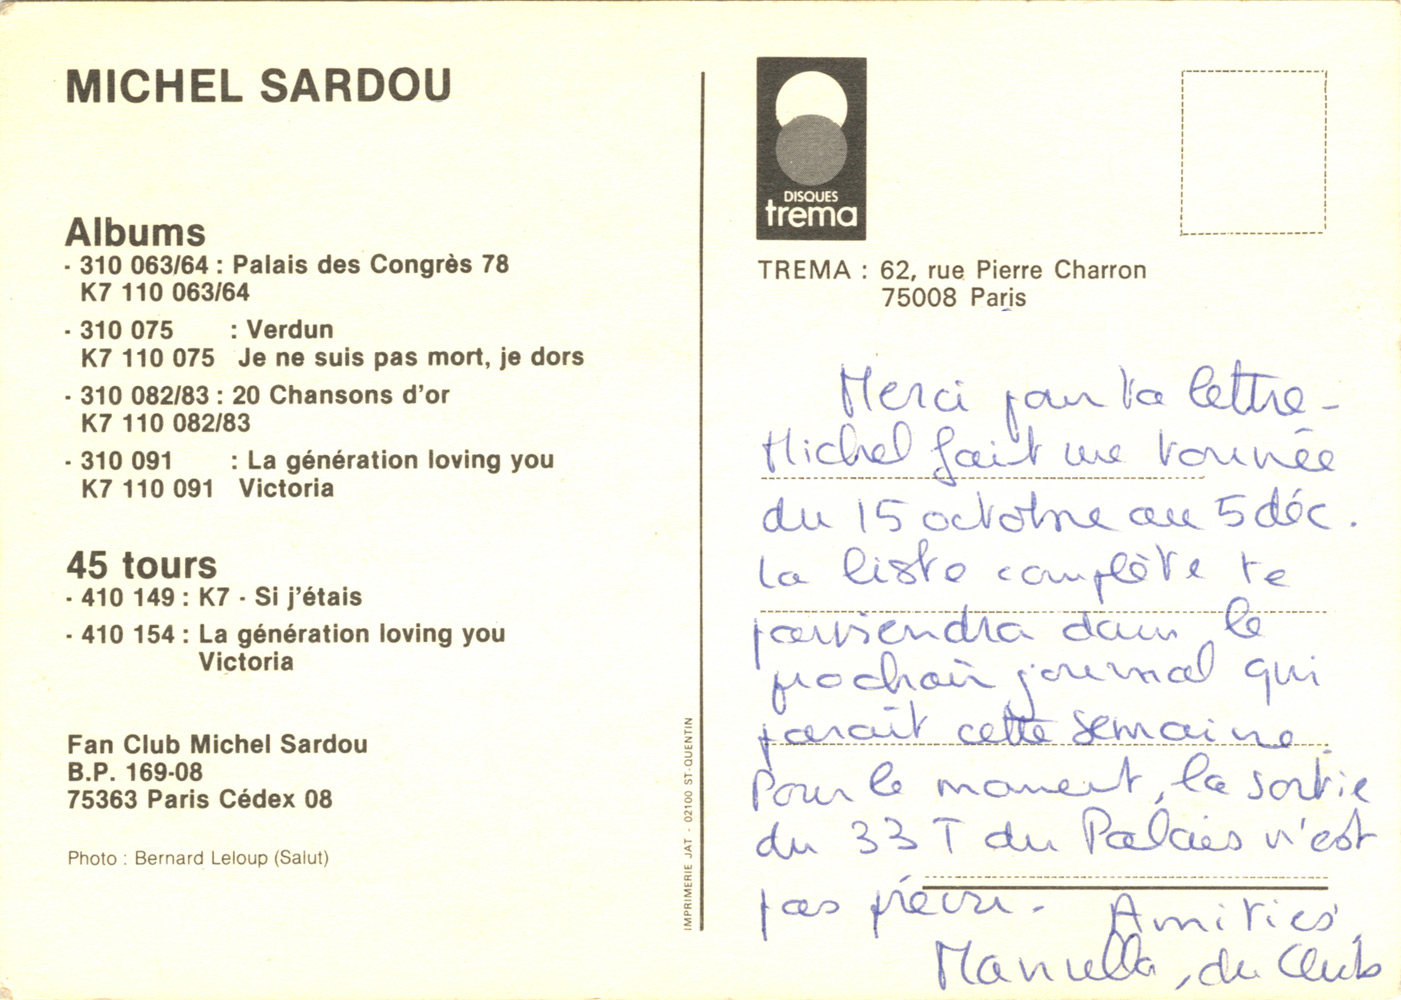 MICHEL SARDOU
Albums
- 310 063/64 : Palais des Congrès 78
K7 110 063/64
- 310 075 : Verdun
K7 110 075 Je ne suis pas mort, je dors
- 310 082/83 : 20 Chansons d'or
K7 110 082/83
- 310 091 : La génération loving you
K7 110 091 Victoria
45 tours
- 410 149 : K7 - Si j'étais
- 410 154 : La génération loving you
Victoria
Fan Club Michel Sardou
B.P. 169-08
75363 Paris Cédex 08
Photo : Bernard Leloup (Salut)
IMPRIMERIE JAT - 02100 ST-QUENTIN
DISQUES
trema
TREMA : 62, rue Pierre Charron
75008 Paris
Merci pour ta lettre -
Michel fait une tournée
du 15 octobre au 5 déc.
La liste complète te
parviendra dans le
prochain journal qui
paraît cette semaine.
Pour le moment, la sortie
du 33 T du Palais n'est
pas prévue. Amitiés,
Manuella, du Club